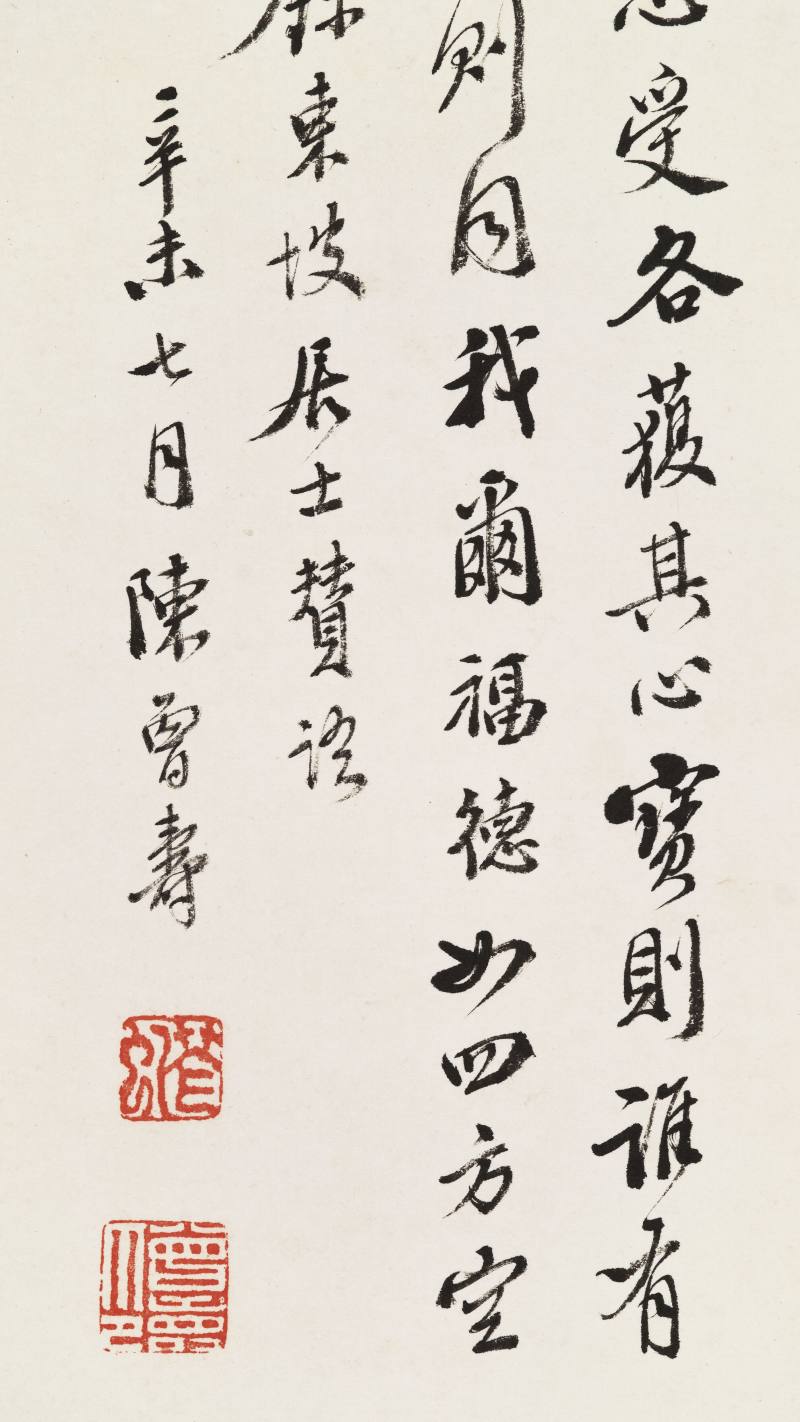 受各獲其心寶則誰有
則同我爾福德如四方空
錄東坡居士贊語
辛未七月陳曾壽